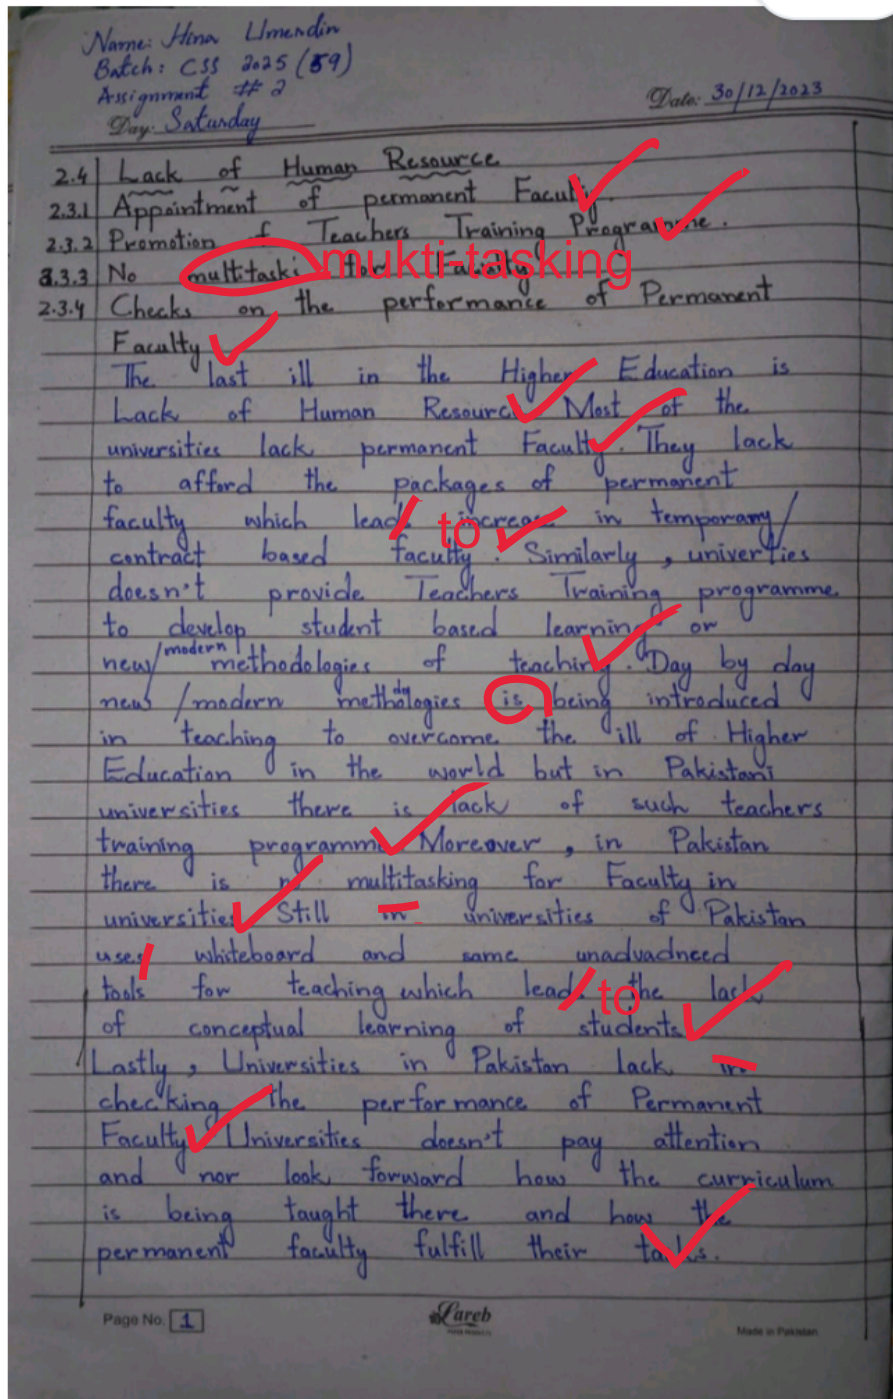 Name: Hina Umerdin
Batch: CSS 2025 (59)
Assignment # 2
Date: 30/12/2023
Day: Saturday
2.4 Lack of Human Resource
2.3.1 Appointment of permanent Faculty.
2.3.2 Promotion of Teachers Training Programme.
3.3.3 No multitaski for Faculty
mukti-tasking
2.3.4 Checks on the performance of Permanent
Faculty
The last ill in the Higher Education is
Lack of Human Resource. Most of the
universities lack permanent Faculty. They lack
to afford the packages of permanent
faculty which leads increase in temporary/
to
contract based faculty. Similarly, univerties
doesn't provide Teachers Training programme
to develop student based learning or
new/modern methodologies of teaching. Day by day
new/modern methdologies is being introduced
in teaching to overcome the ill of Higher
Education in the world but in Pakistani
universities there is lack of such teachers
training programme. Moreover, in Pakistan
there is no multitasking for Faculty in
universities. Still in universities of Pakistan
uses whiteboard and same unadvadneed
tools for teaching which leads the lack
to
of conceptual learning of students.
Lastly, Universities in Pakistan lack in
checking the performance of Permanent
Faculty. Universities doesn't pay attention
and nor look forward how the curriculum
is being taught there and how the
permanent faculty fulfill their tasks.
Page No. 1
Lareb
Made in Pakistan